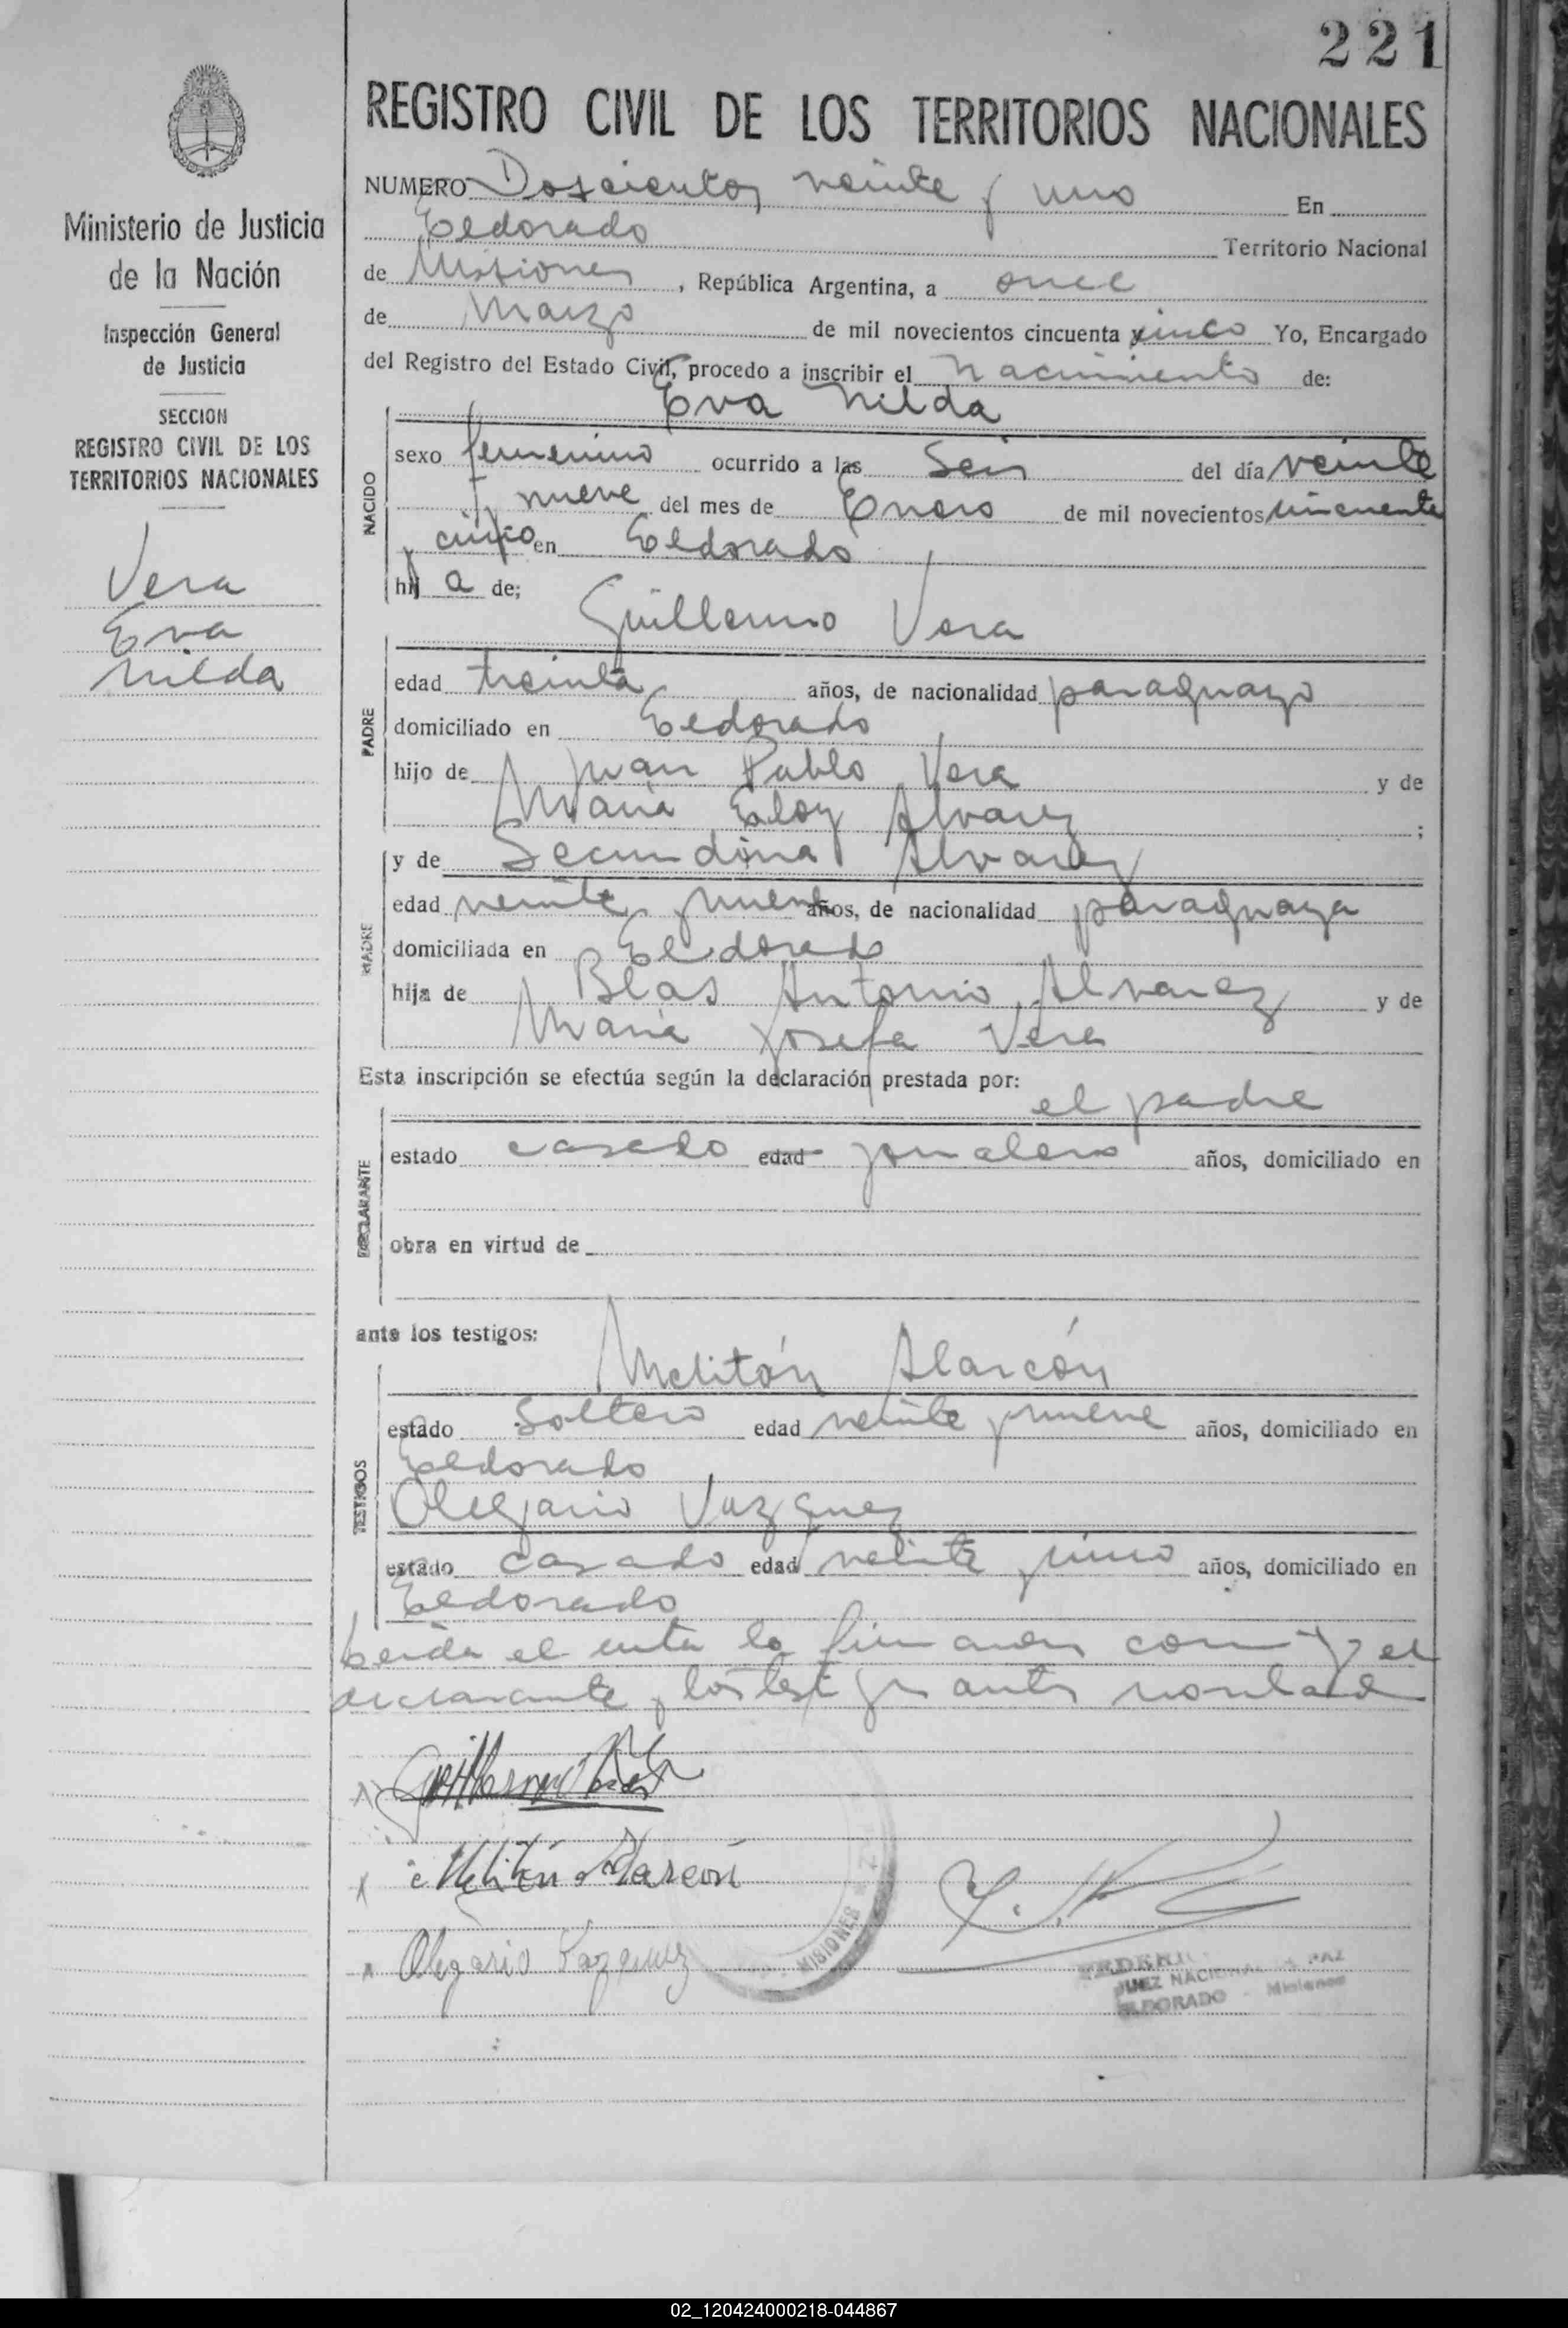 221
REGISTRO CIVIL DE LOS TERRITORIOS NACIONALES
Ministerio de Justicia
de la Nación
Inspección General
de Justicia
SECCION
REGISTRO CIVIL DE LOS
TERRITORIOS NACIONALES
Vera
Eva
Nilda
NUMERO Doscientos veinte y uno En
Eldorado Territorio Nacional
de Misiones, República Argentina, a once
de Marzo de mil novecientos cincuenta y cinco Yo, Encargado
del Registro del Estado Civil, procedo a inscribir el Nacimiento de:
Eva Nilda
NACIDO
sexo femenino ocurrido a las Seis del día veinte
y nueve del mes de Enero de mil novecientos cincuenta
y cinco en Eldorado
hij a de;
Guillermo Vera
PADRE
edad treinta años, de nacionalidad paraguayo
domiciliado en Eldorado
hijo de Juan Pablo Vera y de
Maria Eloy Alvarez ;
y de Secundina Alvarez
MADRE
edad veinte y nueve años, de nacionalidad paraguaya
domiciliada en Eldorado
hija de Blas Antonio Alvarez y de
Maria Josefa Vera
Esta inscripción se efectúa según la declaración prestada por:
el padre
DECLARANTE
estado casado edad jornalero años, domiciliado en
obra en virtud de
ante los testigos:
Melitón Alarcón
TESTIGOS
estado Soltero edad veinte y nueve años, domiciliado en
Eldorado
Olegario Vazquez
estado casado edad veinte y años, domiciliado en
Eldorado
Leida el acta la firmaron conmigo el
declarante y los testigos antes nombrados
Guillermo Vera
Melitón Alarcón
Olegario Vazquez
MISIONES
JUEZ NACIONAL DE PAZ
ELDORADO - Misiones
02_120424000218-044867